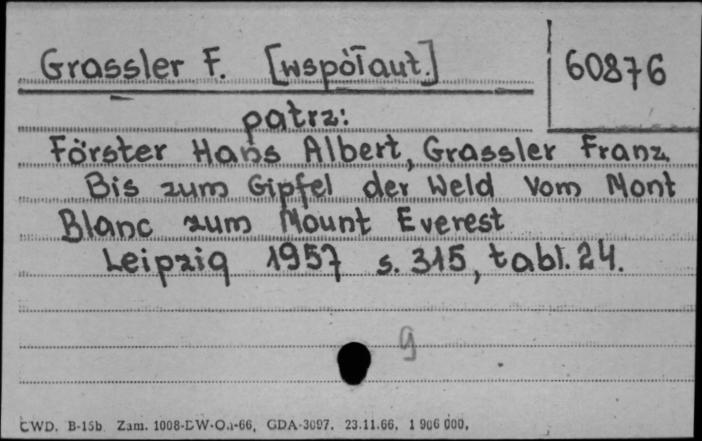 Grassler F. [współaut.]
60876
patrz:
Förster Hans Albert, Grassler Franz
Bis zum Gipfel der Weld Vom Mont
Blanc zum Mount Everest
Leipzig 1957 s. 315, tabl. 24.
g
CWD. B-15b Zam. 1008-DW-O.1-66, GDA-3097. 23.11.66. 1 906 000.